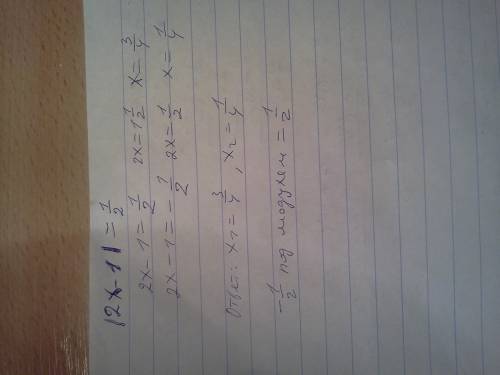 |2x-1| = 1/2
2x-1 = 1/2 2x = 1 1/2 x = 3/4
2x-1 = -1/2 2x = 1/2 x = 1/4
Ответ: x1 = 3/4, x2 = 1/4
-1/2 под модулем = 1/2